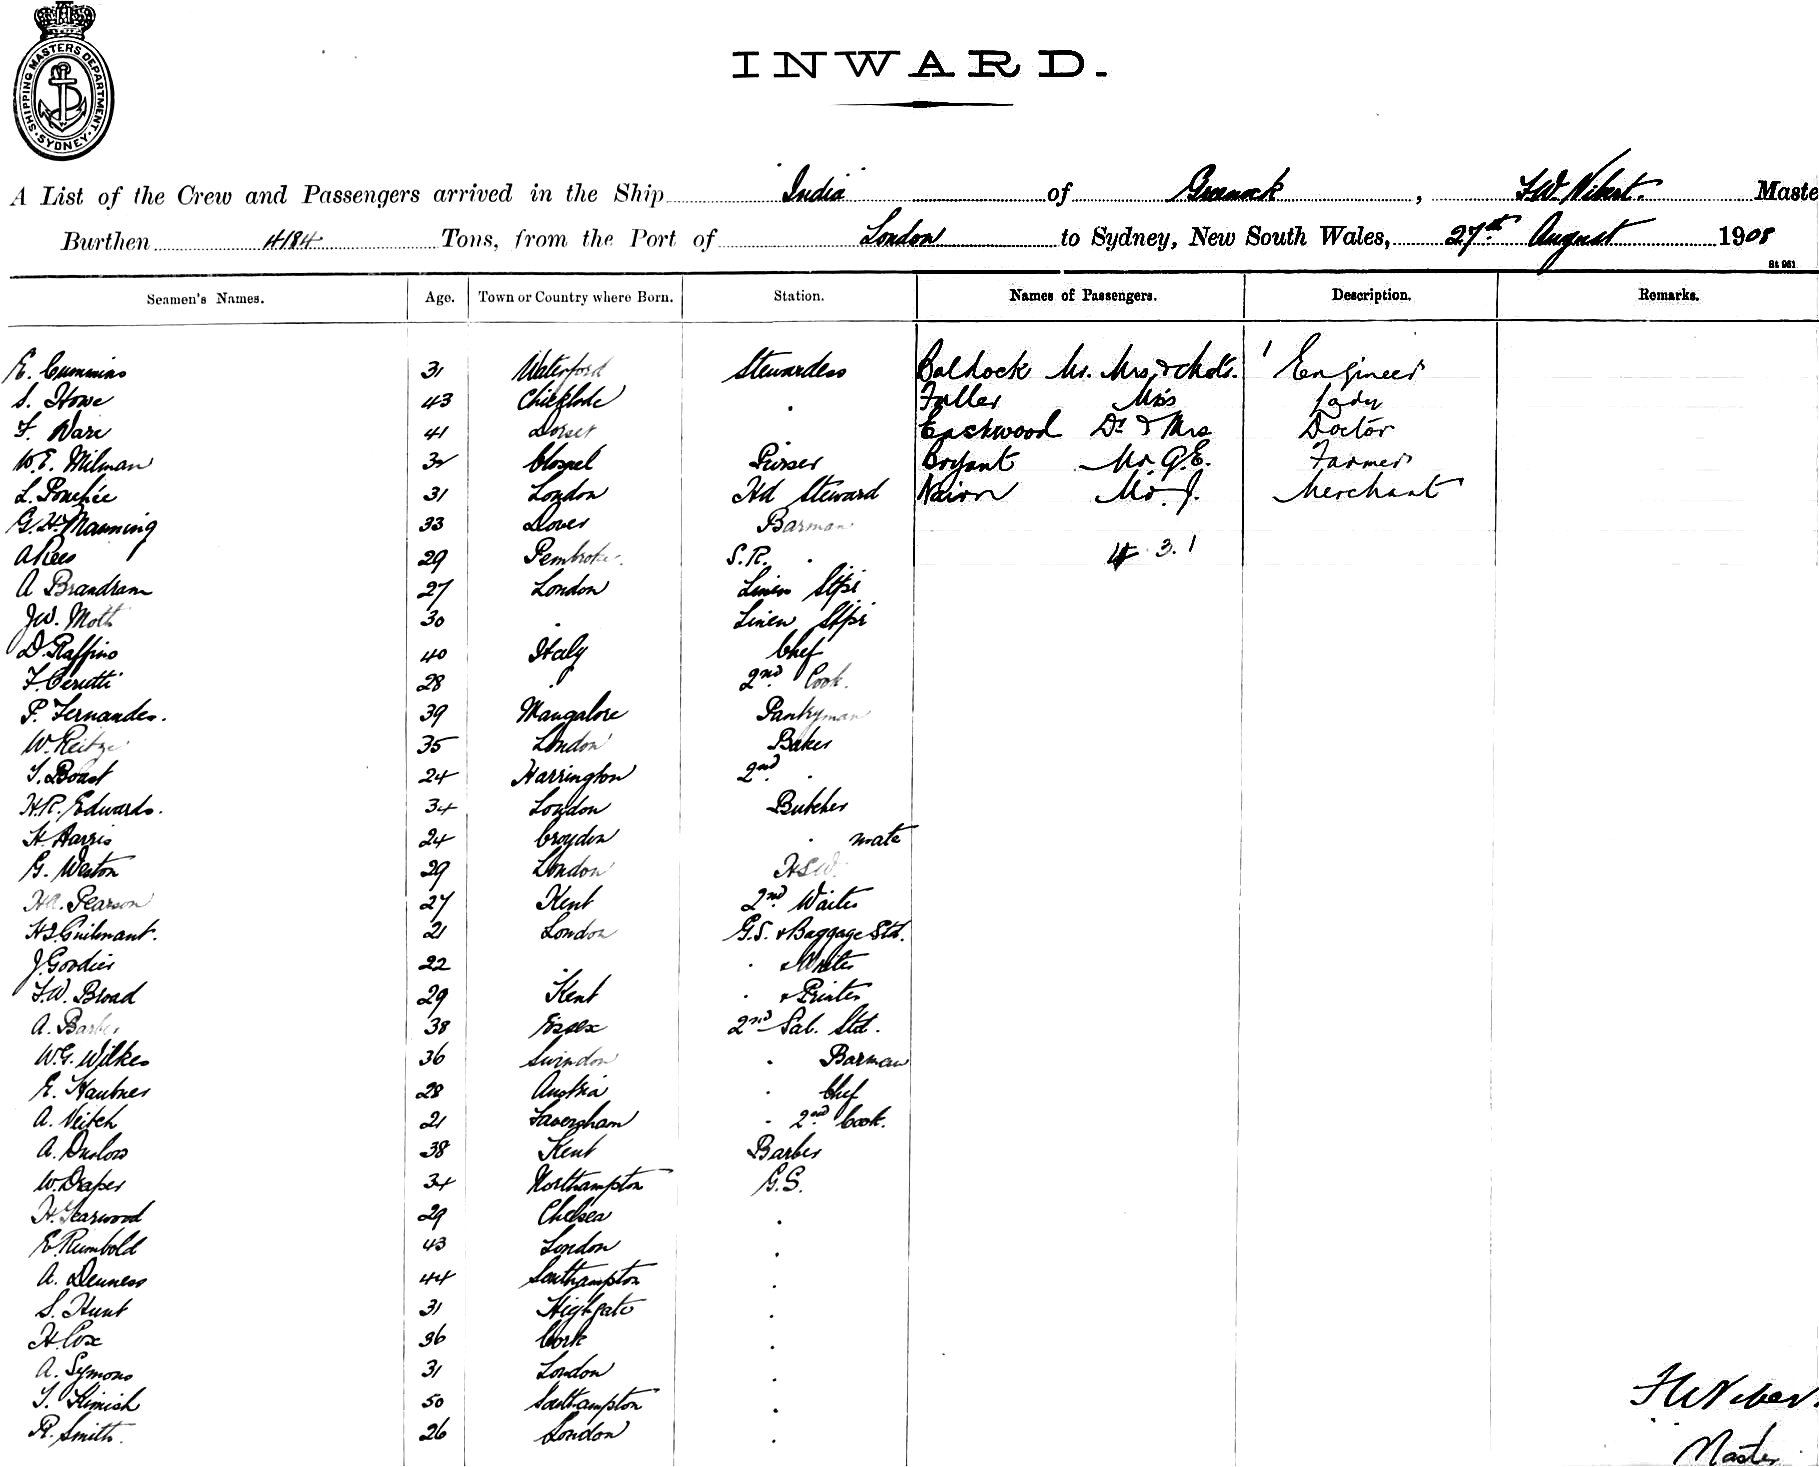 SHIPPING MASTERS DEPARTMENT · SYDNEY ·
INWARD.
A List of the Crew and Passengers arrived in the Ship India of Greenock, F.W. Vibert. Maste
Burthen 4184 Tons, from the Port of London to Sydney, New South Wales, 27th August 1908
St 961
Seamen's Names. Age. Town or Country where Born. Station. Names of Passengers. Description. Remarks.
E. Cummins 31 Waterford Stewardess Baldock Mr. Mrs, & Mstr. 1 Engineer
S. Howe 43 . Fuller Miss Lady
F. Ware 41 Dorset Eastwood Dr & Mrs Doctor
W.E. Milman 32 Purser Bryant Mr. G.E. Farmer
L. 31 London Hd Steward Nairn Mr. J. Merchant
G.H. Manning 33 Dover Barman
A Rees 29 Pembroke. S.R. . 4 3. 1
A Brandram 27 London Linen Stpr
J.W. Moth 30 . Linen Stpr
D. Raffino 40 Italy Chef
F. Cerutti 28 . 2nd Cook.
P. Fernandes. 39 Mangalore Pantryman
W. Reitze 35 London Baker
T. Boast 24 Harrington 2nd .
H.R. Edwards. 34 London Butcher
H. Harris 24 Croydon . mate
G. Weston 29 London H.S.W.
HA. Pearson 27 Kent 2nd Waiter
H.J. Guilmant. 21 London G.S. & Baggage Std.
J. Goodier 22 . . & Writer
F.W. Broad 29 Kent . & Printer
A. Barber 38 Essex 2nd Sal. Std.
W.G. Wilkes 36 Swindon . Barman
E. Haubner 28 Austria . Chef
A. Veitch 21 Faversham . 2nd Cook.
A. Onslow 38 Kent Barber
W. Draper 34 Northampton G.S.
H. Yearwood 29 Chelsea .
E. Rumbold 43 London .
A. Denness 44 Southampton .
S. Hunt 31 Highgate .
H. Cox 36 Cork .
A. Symons 31 London .
T. Kimish 50 Southampton .
R. Smith. 26 London .
F W Viber
Master